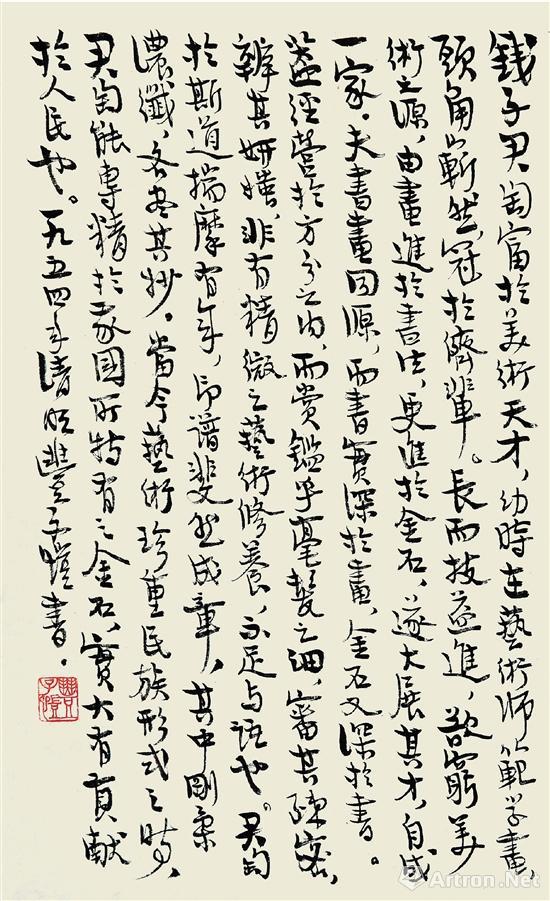 钱子君匋富於美術天才，幼時在藝術師範学畫，
頭角嶄然，冠於儕輩。長而技益進，欲窮美
術之源，由畫進於書法，更進於金石，遂大展其才，自成
一家。夫書畫同源，而書實深於畫，金石又深於書。
蓋經營於方寸之内，而賞鑑乎毫髮之细，審其疎密，
辨其妍媸，非有精微之藝術修養，不足与語也。君匋
於斯道揣摩有年，印譜斐然成章，其中剛柔
濃纖，各尽其妙。當今藝術珍重民族形式之時，
君匋能專精於我國所特有之金石，實大有貢献
於人民也。一九五四年清明豐子愷書。
豐子愷
Artron.Net